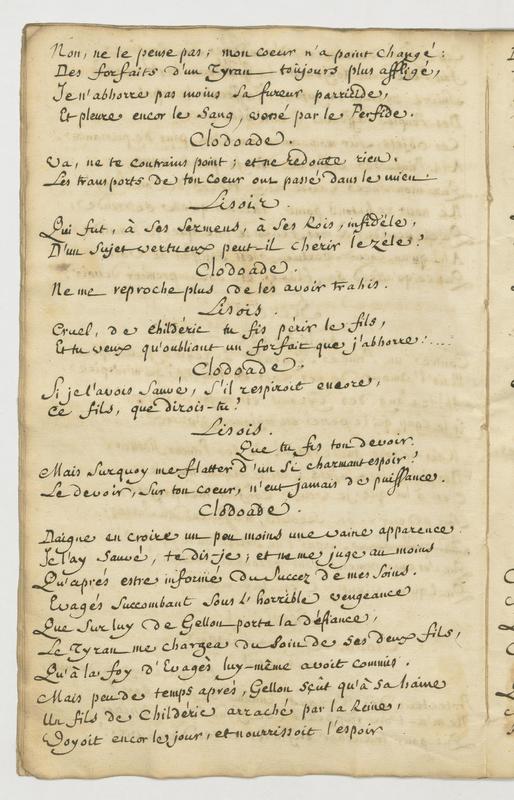 Non, ne le pense pas; mon coeur n'a point changé:
Des forfaits d'un Tyran toujours plus affligé,
Je n'abhorre pas moins sa fureur parricide,
Et pleure encor le Sang, versé par le Perfide.
Clodoade.
Va, ne te contrains point; et ne redoute rien.
Les transports de ton coeur ont passé dans le mien.
Lisois.
Qui fut, à ses Sermens, à ses Rois, infidéle,
D'un Sujet vertueux peut-il chérir le zéle?
Clodoade.
Ne me reproche plus de les avoir trahis.
Lisois.
Cruel, de Childéric tu fis périr le fils,
Et tu veux qu'oubliant un forfait que j'abhorre.....
Clodoade.
Si je l'avois Sauvé, S'il respiroit encore,
Ce fils, que dirois-tu?
Lisois.
Que tu fis ton devoir.
Mais Surquoy me flatter d'un Si charmant espoir?
Le devoir, Sur ton coeur, n'eut jamais de puissance.
Clodoade.
Daigne en croire un peu moins une vaine apparence.
Je l'ay Sauvé, te dis-je; et ne me juge au moins
Qu'aprés estre informé du Succez de mes Soins.
Evagés Succombant Sous l'horrible vengeance
Que Sur luy de Gellon porta la défiance,
Le Tyran me chargea du Soin de Ses deux fils,
Qu'à la foy d'Evagés luy-même avoit commis.
Mais peu de temps aprés, Gellon Sçût qu'à Sa haine
Un fils de Childéric arraché par la Reine,
Voyoit encor le jour, et nourrissoit l'espoir